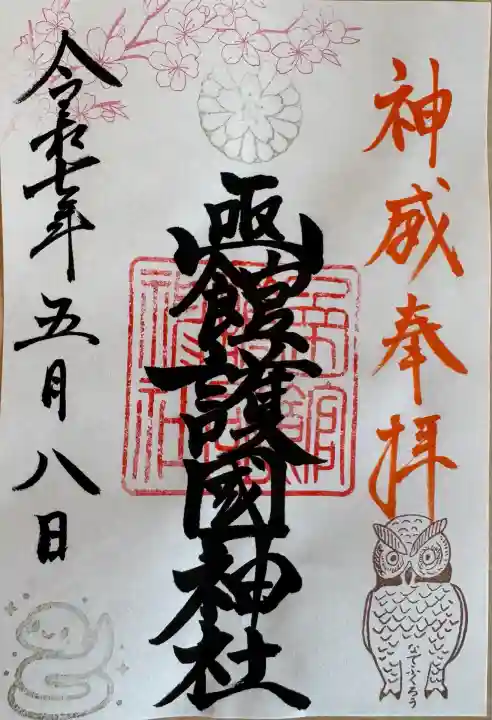 神威奉拝
なでふくろう
函館護國神社
令和七年五月八日